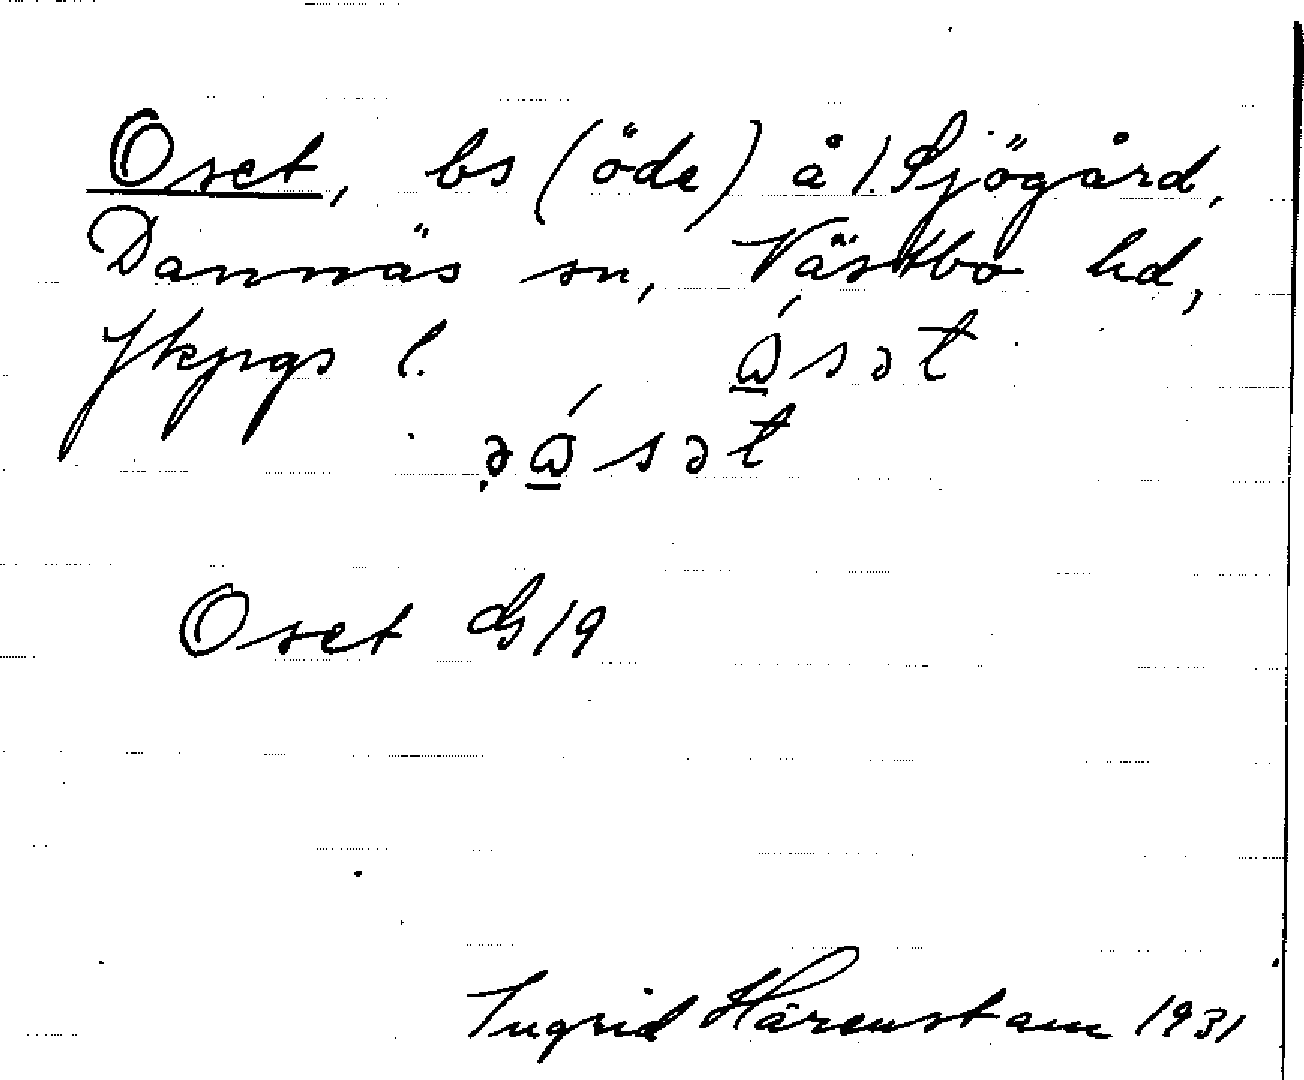 Oset, bs (öde) å 1. Sjögård,
Dannäs sn, Västbo hd,
Jkpgs l.
Oset GS 19
Ingrid Härenstam 1931